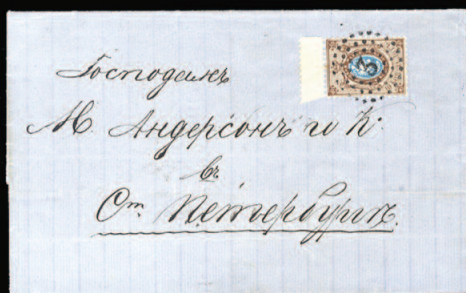 Господамъ
М. Андерсонъ и К:
въ
Ст. Петербургѣ.